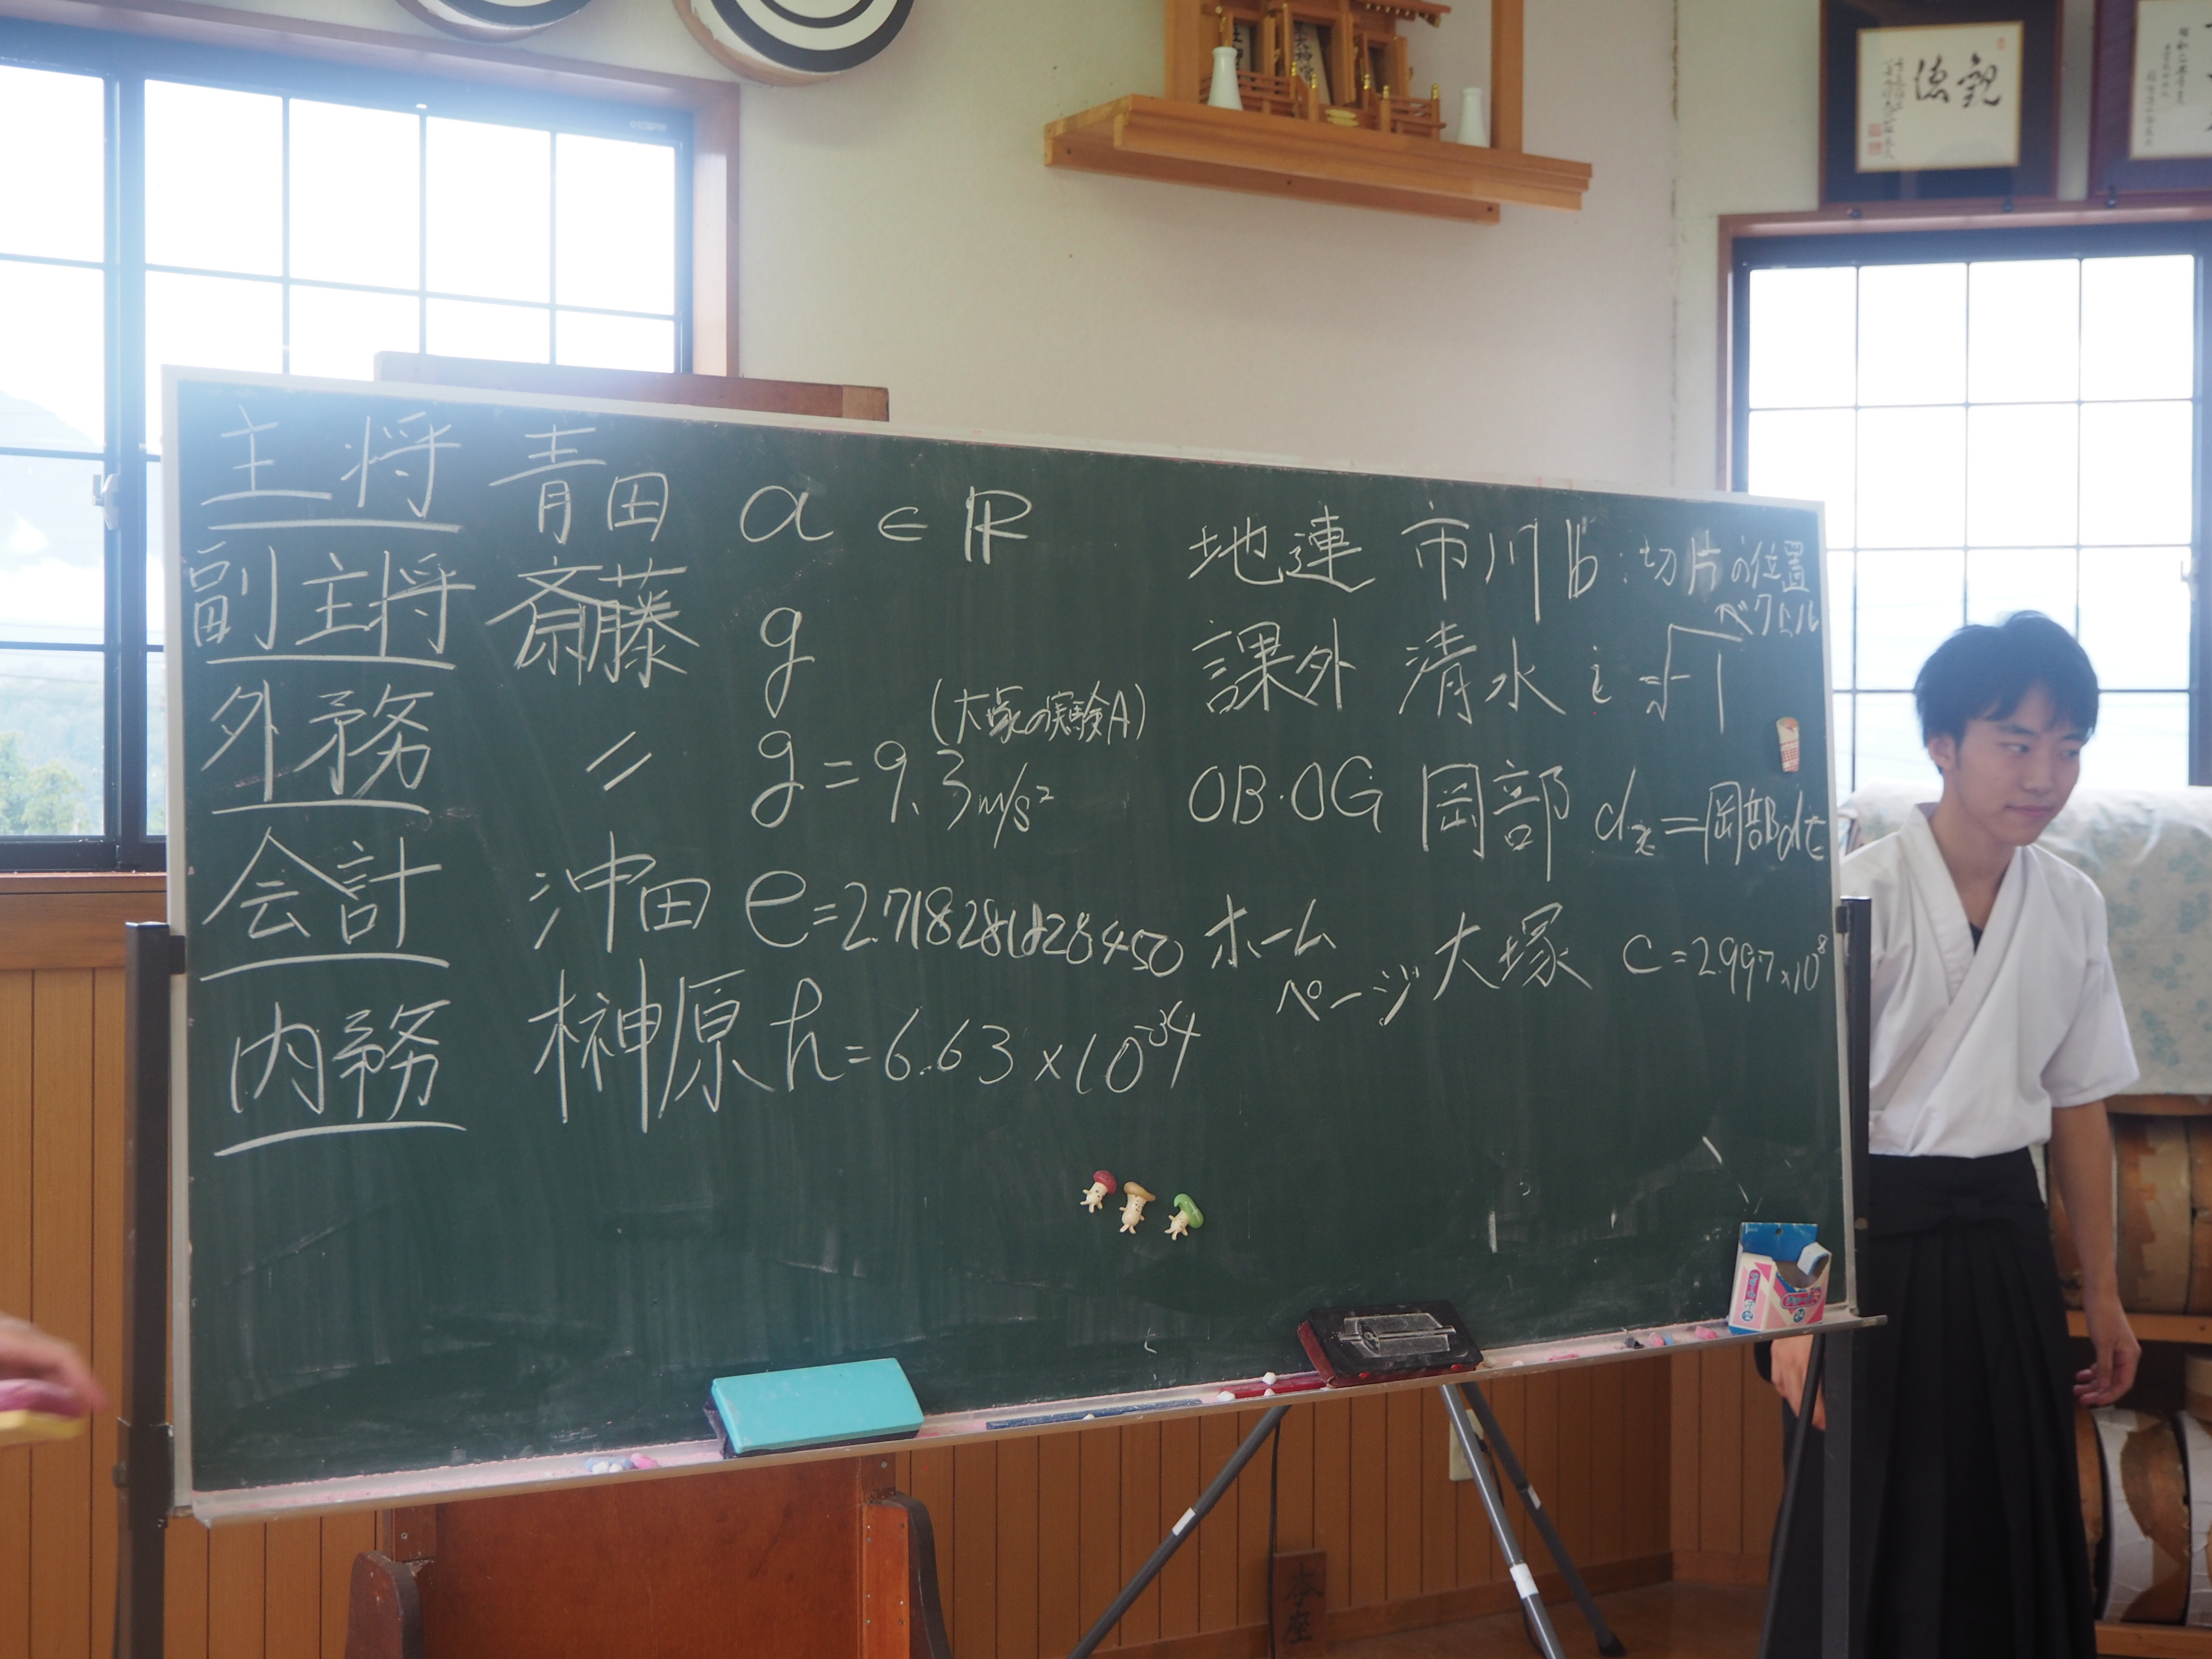 観徳
主将 青田 a ∈ ℝ
副主将 斎藤 g
外務 〃 g=9.3m/s² (大塚の実験A)
会計 沖田 e=2.718281828450
内務 榊原 h=6.63×10⁻³⁴
地連 市川 b:切片の位置ベクトル
課外 清水 i=√-1
OB·OG 岡部 dx=岡部dt
ホームページ 大塚 c=2.997×10⁸
本座